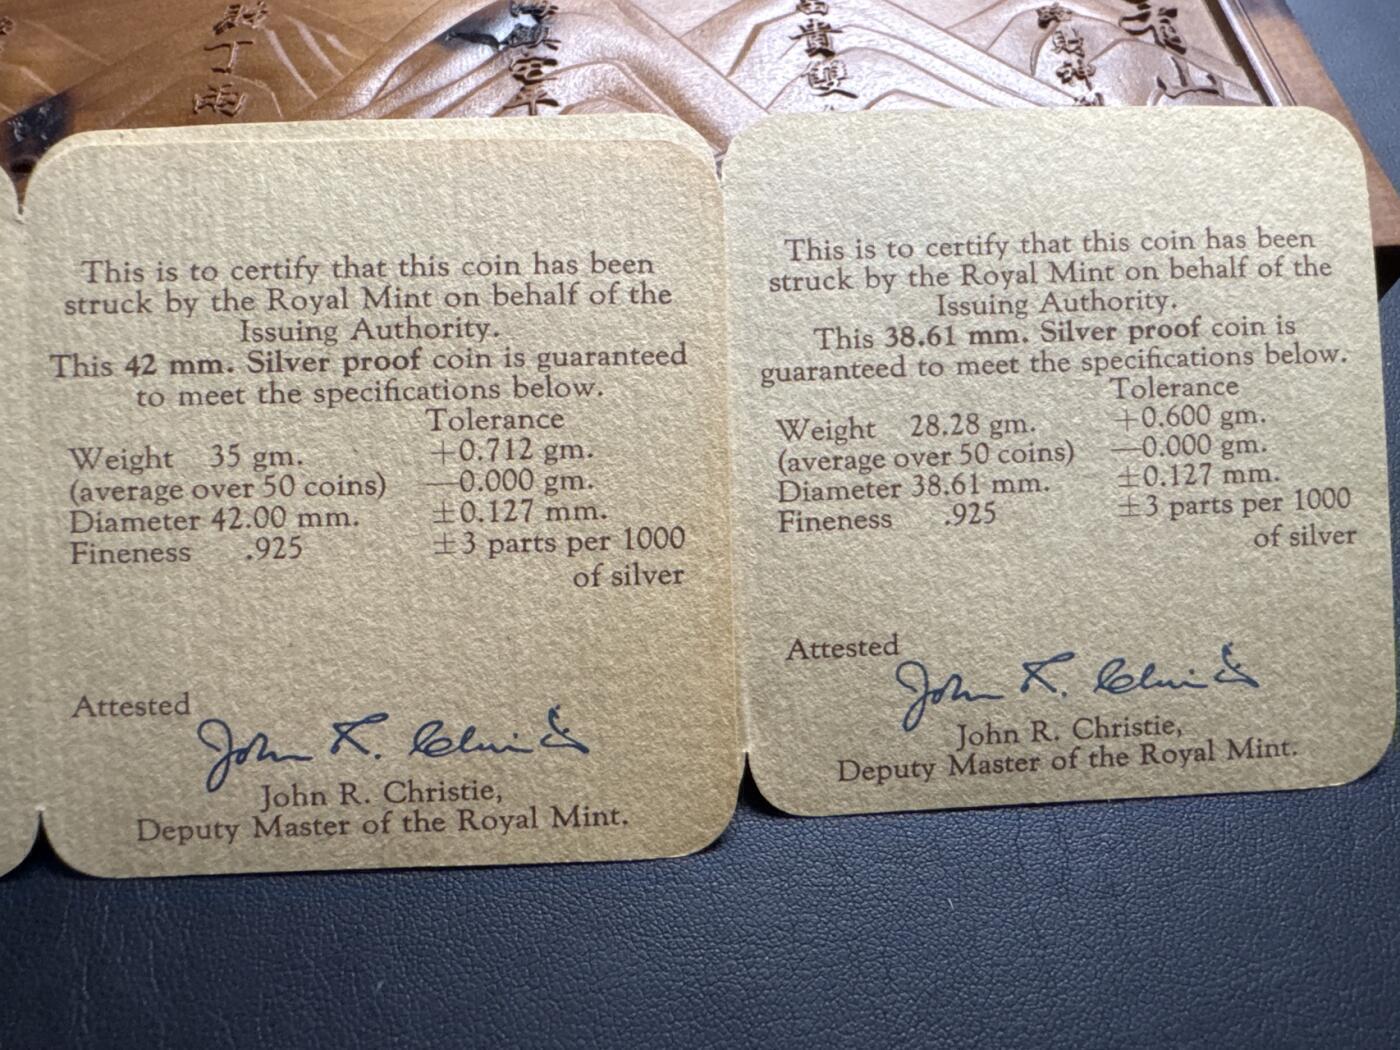 富
貴
雙
財
神
山
年
丁
This is to certify that this coin has been
struck by the Royal Mint on behalf of the
Issuing Authority.
This 42 mm. Silver proof coin is guaranteed
to meet the specifications below.
Tolerance
Weight 35 gm. +0.712 gm.
(average over 50 coins) —0.000 gm.
Diameter 42.00 mm. ±0.127 mm.
Fineness .925 ±3 parts per 1000
of silver
Attested
John R. Christie
John R. Christie,
Deputy Master of the Royal Mint.
This is to certify that this coin has been
struck by the Royal Mint on behalf of the
Issuing Authority.
This 38.61 mm. Silver proof coin is
guaranteed to meet the specifications below.
Tolerance
Weight 28.28 gm. +0.600 gm.
(average over 50 coins) —0.000 gm.
Diameter 38.61 mm. ±0.127 mm.
Fineness .925 ±3 parts per 1000
of silver
Attested
John R. Christie
John R. Christie,
Deputy Master of the Royal Mint.